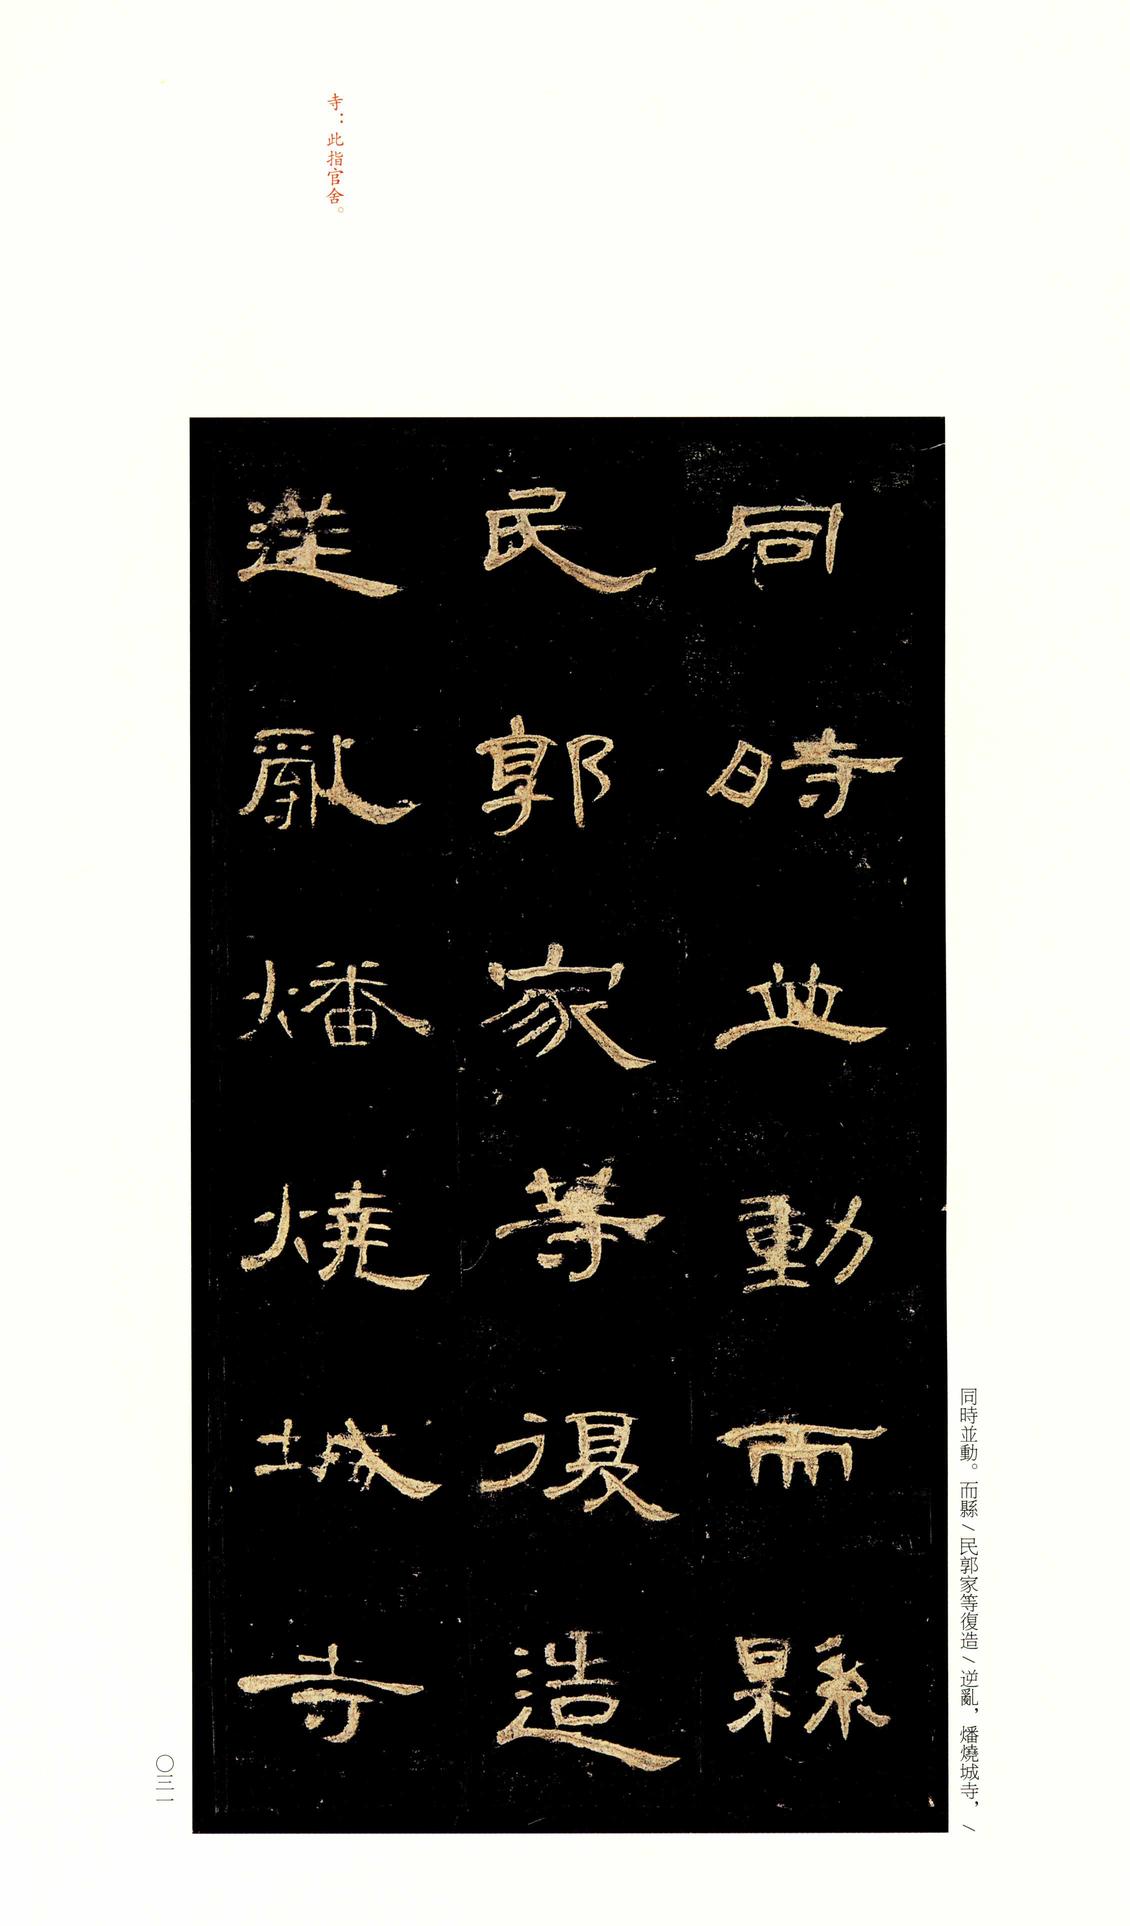 寺：此指官舍。
同時並動而縣
民郭家等復造
逆亂燔燒城寺
同時並動。而縣／民郭家等復造／逆亂，燔燒城寺，／
〇三一